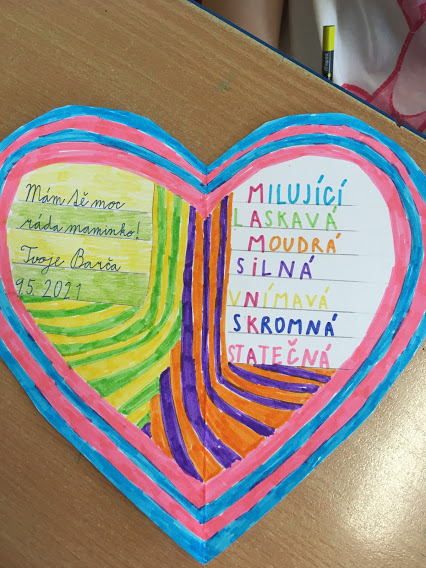 Mám tě moc
ráda maminko!
Tvoje Barča
9.5.2021
MILUJÍCÍ
LASKAVÁ
MOUDRÁ
SILNÁ
VNÍMAVÁ
SKROMNÁ
STATEČNÁ